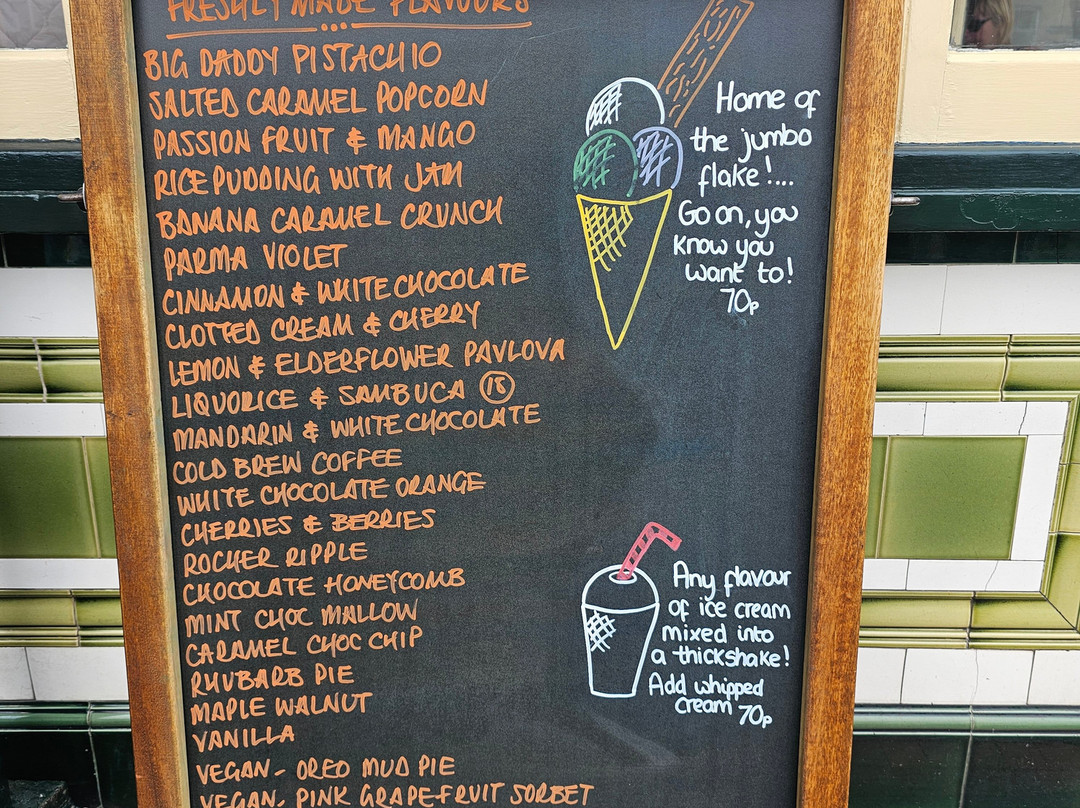 FRESHLY MADE FLAVOURS
BIG DADDY PISTACHIO
SALTED CARAMEL POPCORN
PASSION FRUIT & MANGO
RICE PUDDING WITH JAM
BANANA CARAMEL CRUNCH
PARMA VIOLET
CINNAMON & WHITE CHOCOLATE
CLOTTED CREAM & CHERRY
LEMON & ELDERFLOWER PAVLOVA
LIQUORICE & SAMBUCA 18
MANDARIN & WHITE CHOCOLATE
COLD BREW COFFEE
WHITE CHOCOLATE ORANGE
CHERRIES & BERRIES
ROCHER RIPPLE
CHOCOLATE HONEYCOMB
MINT CHOC MALLOW
CARAMEL CHOC CHIP
RHUBARB PIE
MAPLE WALNUT
VANILLA
VEGAN - OREO MUD PIE
VEGAN - PINK GRAPEFRUIT SORBET
Home of
the jumbo
flake!...
Go on, you
know you
want to!
70p
Any flavour
of ice cream
mixed into
a thickshake!
Add whipped
cream 70p